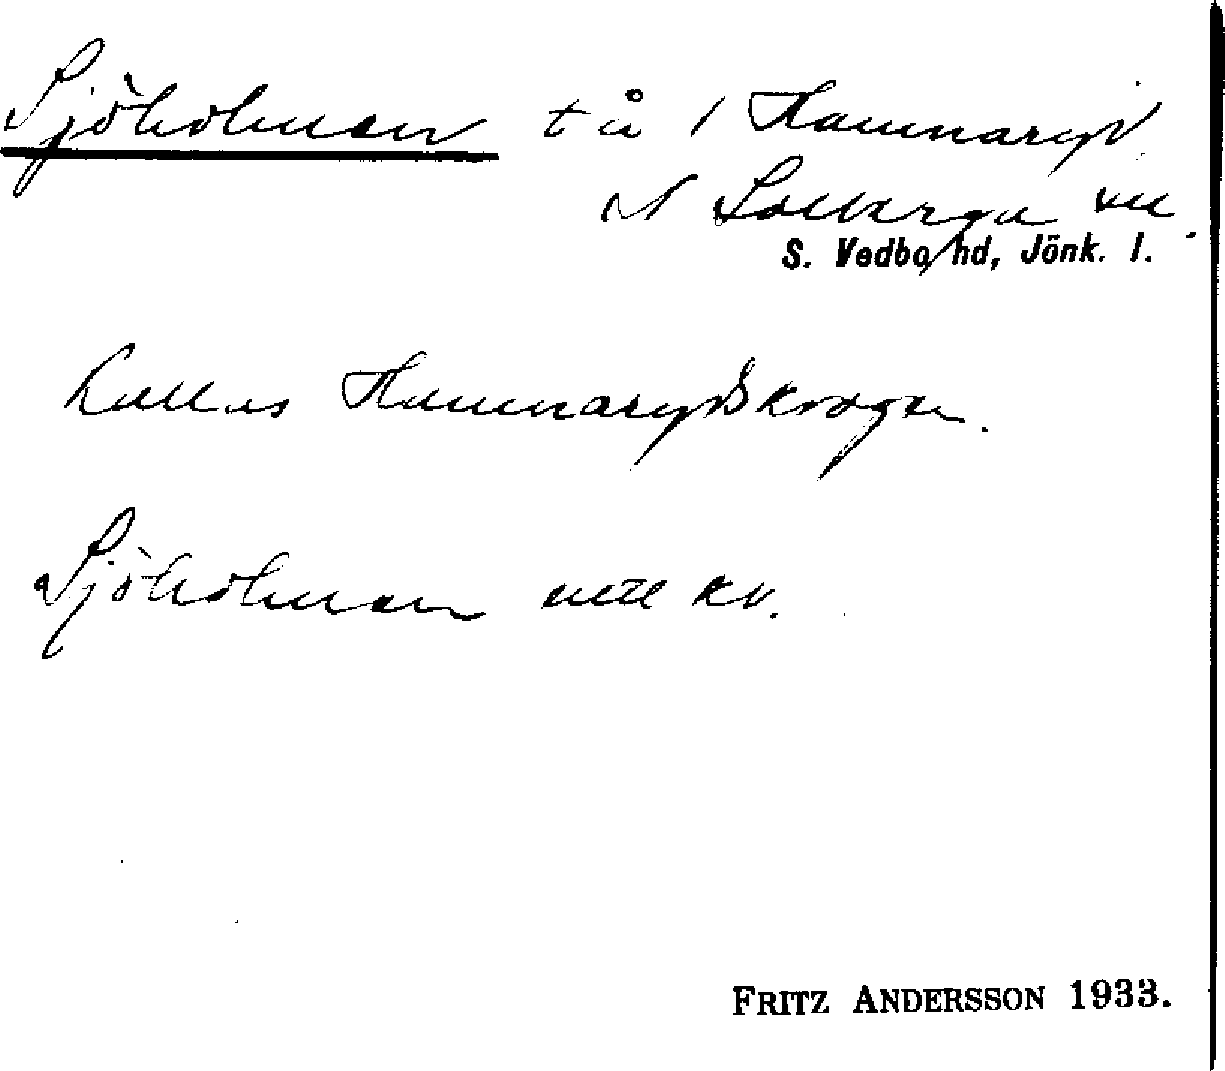 Sjöholmen tå i Hamnaryd
N Solberga sn.
S. Vedbo hd, Jönk. l.
Kallas Hamnarydskrogen.
Sjöholmen
FRITZ ANDERSSON 1933.